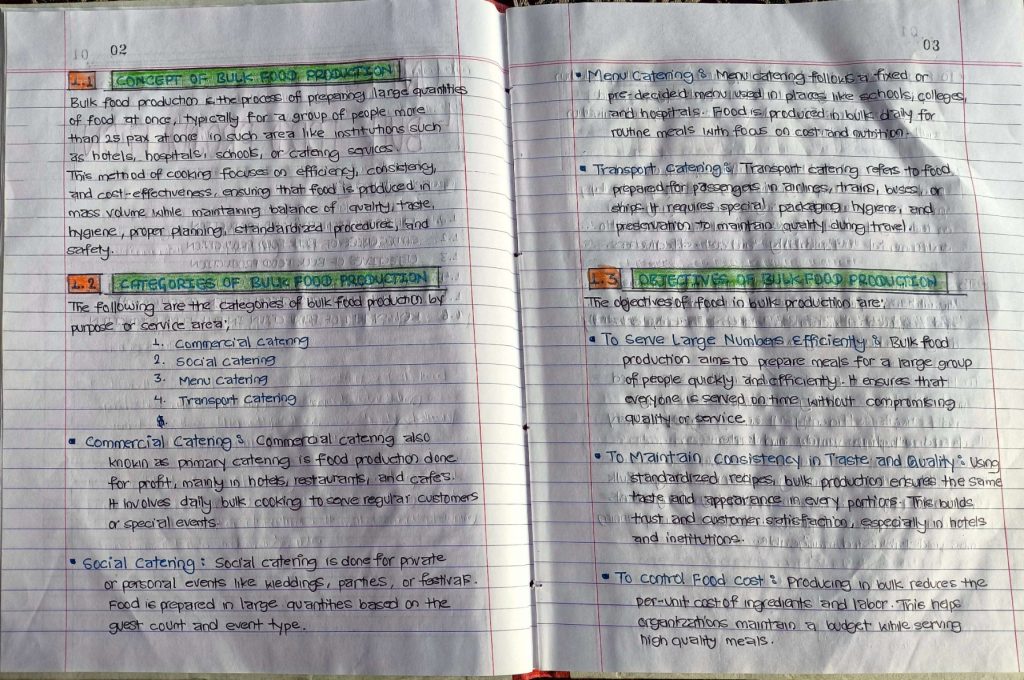 02
1.1 CONCEPT OF BULK FOOD PRODUCTION
Bulk food production is the process of preparing large quantities
of food at once, typically for a group of people more
than 25 pax at once in such area like institutions such
as hotels, hospitals, schools, or catering services.
This method of cooking focuses on efficiency, consistency,
and cost-effectiveness, ensuring that food is produced in
mass volume while maintaining balance of quality, taste,
hygiene, proper planning, standardized procedures, and
safety.
1.2 CATEGORIES OF BULK FOOD PRODUCTION
The following are the categories of bulk food production by
purpose or service area;
1. Commercial catering
2. Social catering
3. Menu catering
4. Transport catering
• Commercial Catering : Commercial catering also
known as primary catering is food production done
for profit, mainly in hotels, restaurants, and cafes.
It involves daily bulk cooking to serve regular customers
or special events.
• Social Catering : Social catering is done for private
or personal events like weddings, parties, or festivals.
Food is prepared in large quantities based on the
guest count and event type.
03
• Menu Catering : Menu catering follows a fixed or
pre-decided menu used in places like schools, colleges,
and hospitals. Food is produced in bulk daily for
routine meals with focus on cost and nutrition.
• Transport Catering : Transport catering refers to food
prepared for passengers in airlines, trains, buses, or
ships. It requires special packaging, hygiene, and
preservation to maintain quality during travel.
1.3 OBJECTIVES OF BULK FOOD PRODUCTION
The objectives of food in bulk production are;
• To Serve Large Numbers Efficiently : Bulk food
production aims to prepare meals for a large group
of people quickly and efficiently. It ensures that
everyone is served on time without compromising
quality or service.
• To Maintain Consistency in Taste and Quality : Using
standardized recipes, bulk production ensures the same
taste and appearance in every portions. This builds
trust and customer satisfaction, especially in hotels
and institutions.
• To Control Food Cost : Producing in bulk reduces the
per-unit cost of ingredients and labor. This helps
organizations maintain a budget while serving
high quality meals.